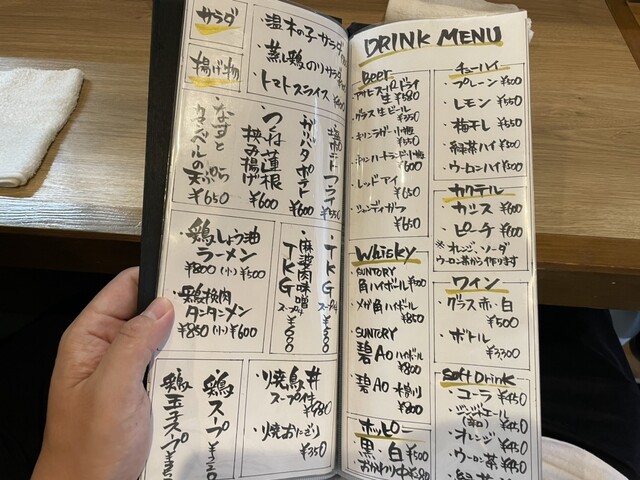 サラダ
・温木の子サラダ
・蒸し鶏のりサラダ
・トマトスライス
揚げ物
フライ
¥550
ガリバタポテト
¥600
・つくね蓮根
挟み揚げ
¥600
・なすと
カマンベールの
天ぷら
¥650
・鶏しょう油
ラーメン
¥800 (小)¥500
・鶏挽肉
タンタンメン
¥850 (小)¥600
・TKG
スープ付
・麻婆肉味噌
TKG
スープ付
鶏スープ
鶏玉子スープ
・焼鳥丼
スープ付
¥980
・焼おにぎり
¥350
DRINK MENU
Beer
・アサヒスーパードライ
生 ¥580
・グラス生ビール
¥350
・キリンラガー小瓶
・キリンハートランド小瓶
・レッドアイ
¥650
・シャンディガフ
¥650
Whisky
・SUNTORY
角ハイボール
¥500
・メガ角ハイボール
¥850
・SUNTORY
碧Aoハイボール
¥800
・碧Ao 水割り
¥800
ホッピー
・黒・白 ¥500
おかわり中
チューハイ
・プレーン ¥500
・レモン ¥550
・梅干し ¥550
・緑茶ハイ ¥500
・ウーロンハイ ¥500
カクテル
・カシス ¥600
・ピーチ ¥600
※オレンジ、ソーダ
ウーロン茶から作ります
ワイン
・グラス赤・白
¥500
・ボトル
¥3300
Soft Drink
・コーラ ¥450
・ジンジャエール
(辛口) ¥450
・オレンジ ¥450
・ウーロン茶 ¥450